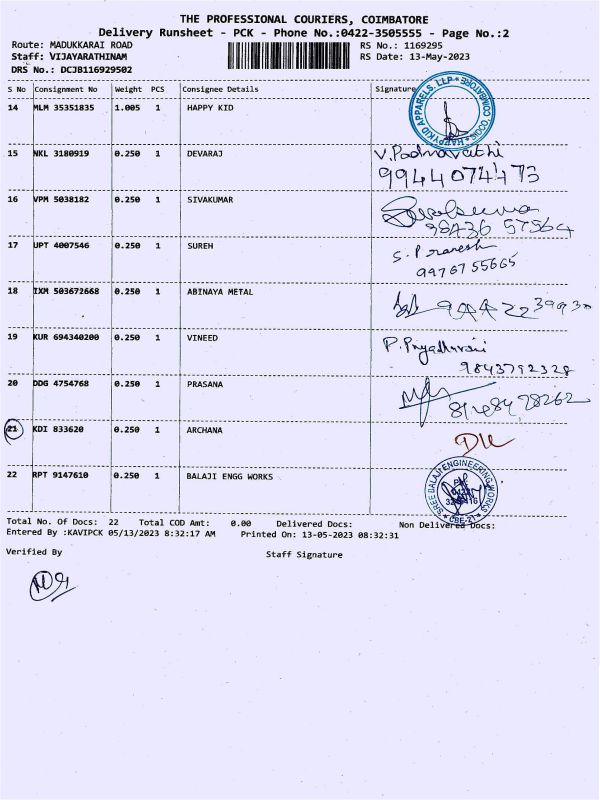 THE PROFESSIONAL COURIERS, COIMBATORE
Delivery Runsheet - PCK - Phone No.:0422-3505555 - Page No.:2
Route: MADUKKARAI ROAD RS No.: 1169295
Staff: VIJAYARATHINAM RS Date: 13-May-2023
DRS No.: DCJB116929502
S No Consignment No Weight PCS Consignee Details Signature
14 MLM 35351835 1.005 1 HAPPY KID
HAPPYKID APPARELS. LLP * COIMBATORE
15 NKL 3180919 0.250 1 DEVARAJ V. Padmavathi
9944074473
16 VPM 5038182 0.250 1 SIVAKUMAR
98436 57564
17 UPT 4007546 0.250 1 SUREH S. Pranesh
9976755665
18 IXM 503672668 0.250 1 ABINAYA METAL
19 KUR 694340200 0.250 1 VINEED P. Priyadharsini
9843792328
20 DDG 4754768 0.250 1 PRASANA
21 KDI 833620 0.250 1 ARCHANA
22 RPT 9147610 0.250 1 BALAJI ENGG WORKS
SREE BALAJI ENGINEERING WORKS * CBE-21 *
Total No. Of Docs: 22 Total COD Amt: 0.00 Delivered Docs: Non Delivered Docs:
Entered By :KAVIPCK 05/13/2023 8:32:17 AM Printed On: 13-05-2023 08:32:31
Verified By Staff Signature